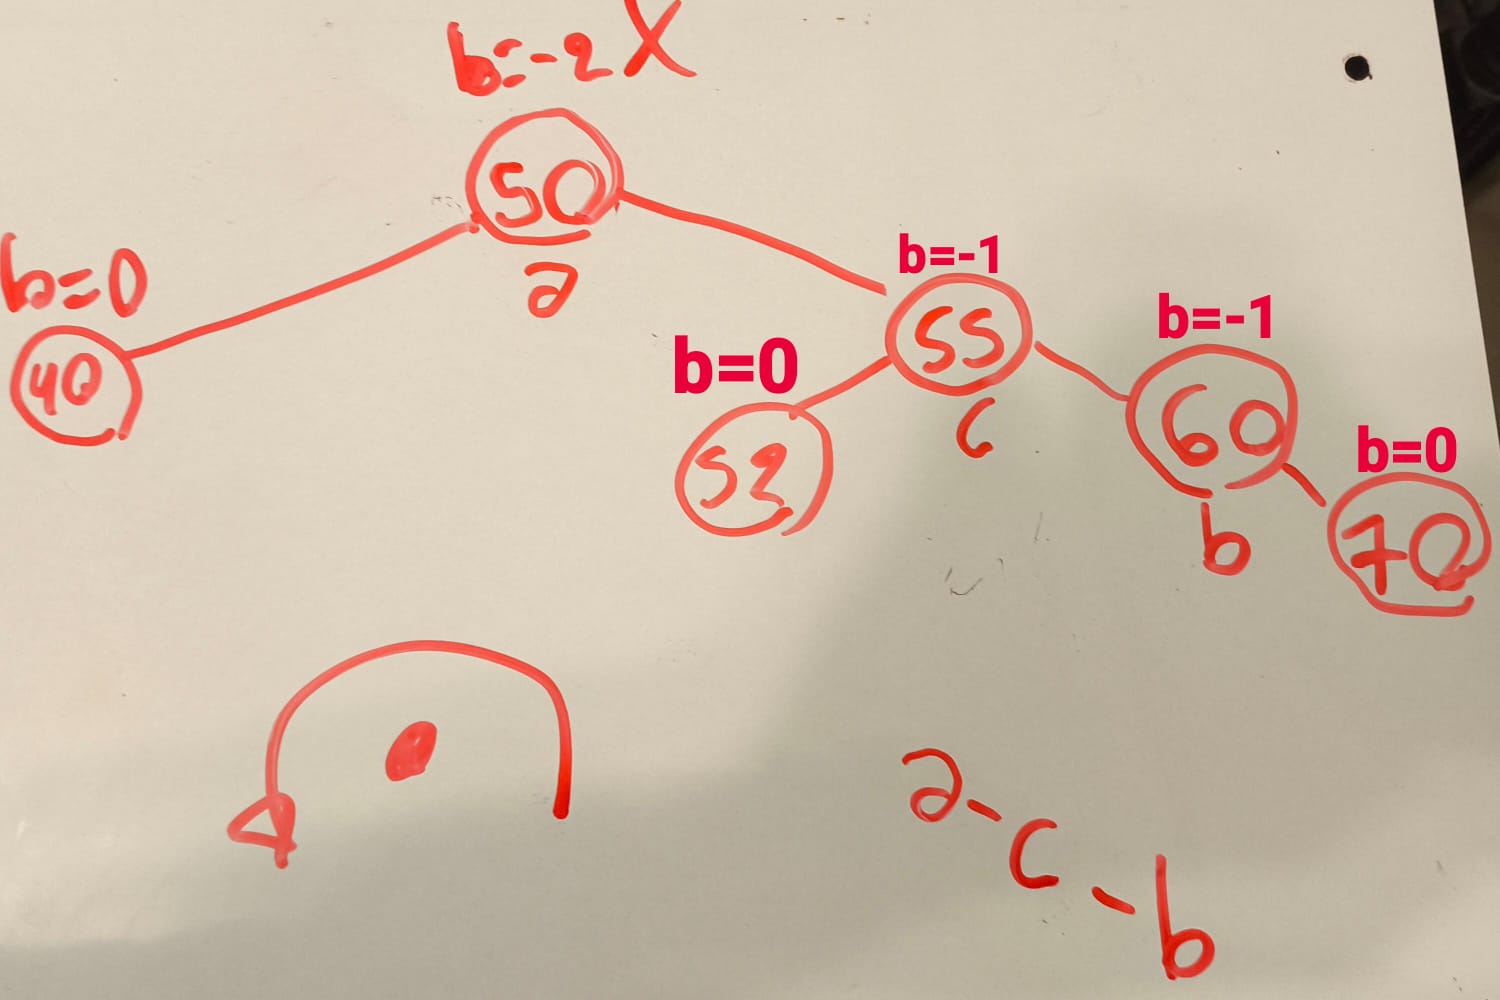 b=-2 X
50
a
b=0
40
b=-1
55
c
b=0
52
b=-1
60
b
b=0
70
a-c-b